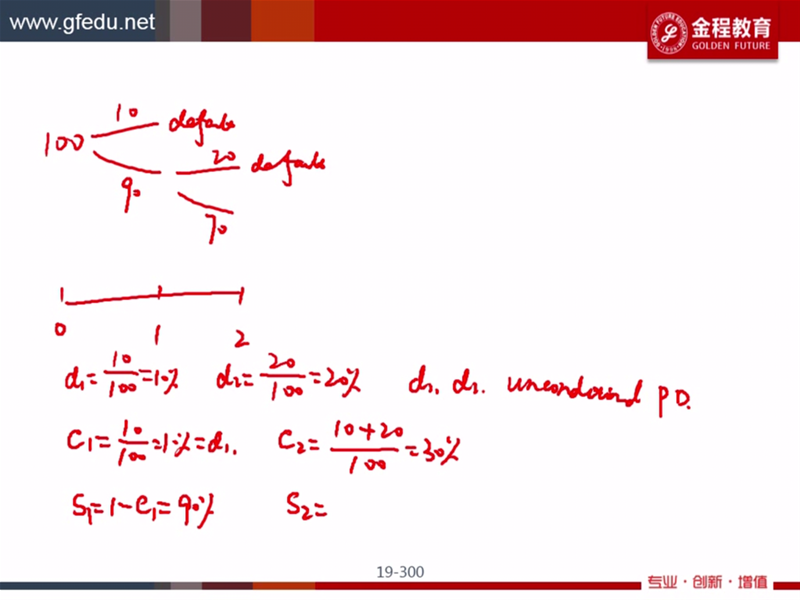 www.gfedu.net
金程教育
GOLDEN FUTURE
10
100
default
20
default
90
70
0 1 2
d₁=10/100=10% d₂=20/100=20% d₁, d₂. PD.
C₁=10/100=10%=d₁. C₂=10+20/100=30%
S₁=1-C₁=90% S₂=
19-300
专业·创新·增值